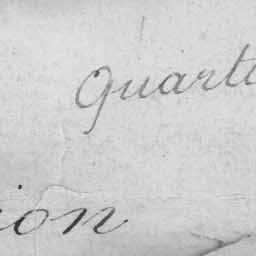 Quart
ion